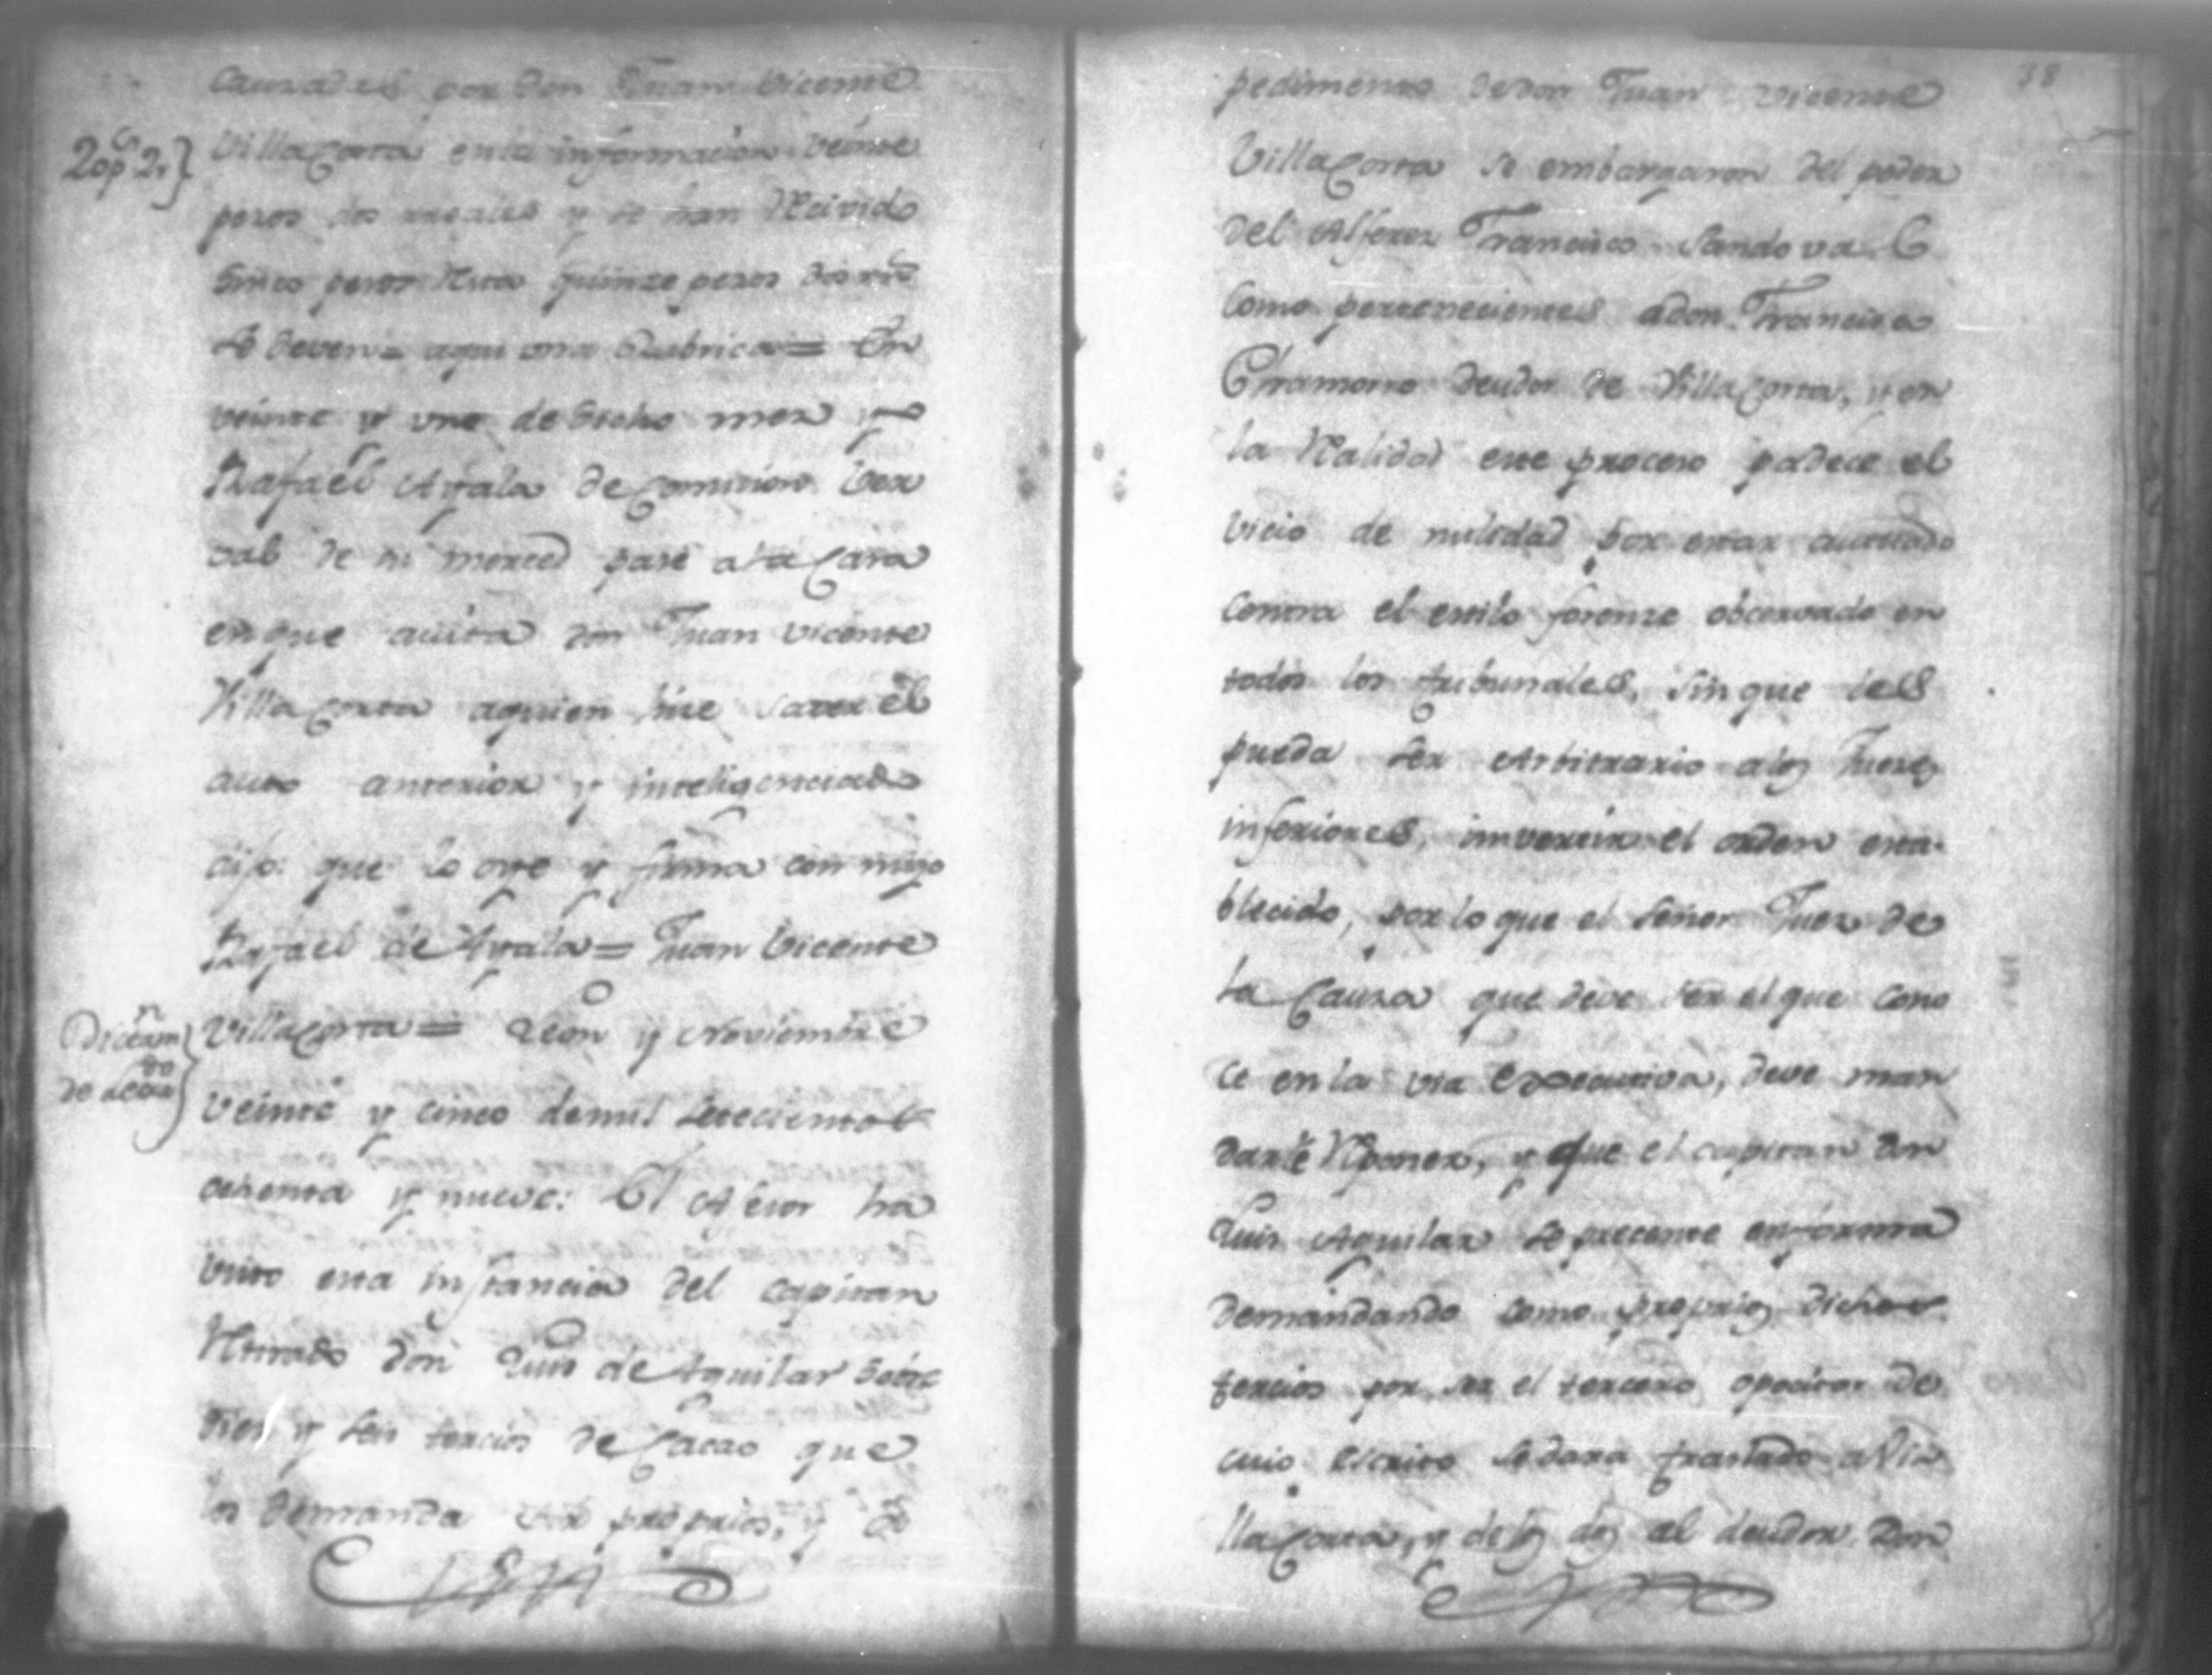 cauzales por don Juan Vicente
20ps 2r} VillaCorta enla informacion veinte
pezos dos rreales y se han Recivido
sinco pezos Resta quinze pezos dos rrs
Se deven = aqui una Rubrica = En
veinte y uno de dicho mez yo
Rafael Ayala de Comicion Ver
val de su merced pasé ala Casa
enque avita don Juan Vicente
VillaCorta aquien hise saver el
auto anterior y inteligenciado
dijo: que lo oye y firma con migo
Rafael de Ayala = Juan Vicente
VillaCorta = Leon y Noviembre
Dictamn
veinte y cinco demil setecientos
ochenta y nueve: El Asesor ha
visto esta instancia del capitan
Retirado don Luis de Aguilar sobre
diez y seis tercios de Cacao que
los demanda por proprios, y de
38
pedimento dedon Juan Vicente
VillaCorta se embargaron del poder
del Alferez Francisco Sandoval
Como pertenecientes adon Francisco
Chamorro deudor de VillaCorta, y en
la Realidad este proceso padece el
vicio de nulidad por estar actuado
contra el estilo forenze obcervado en
todos los tribunales, sin que les
pueda ser Arbitrario alos Juezes
inferiores, invertir el orden esta-
blecido, por lo que el Señor Juez de
la Cauza que deve ser el que cono
ce en la via executiva, deve man
darle Reponer, y que el capitan don
Luis Aguilar se precente enforma
demandando como proprios dichos
tercios por ser el tercero opocitor de
cuio escrito se dara traslado aVi
llaCorta, y delos dos al deudor Don